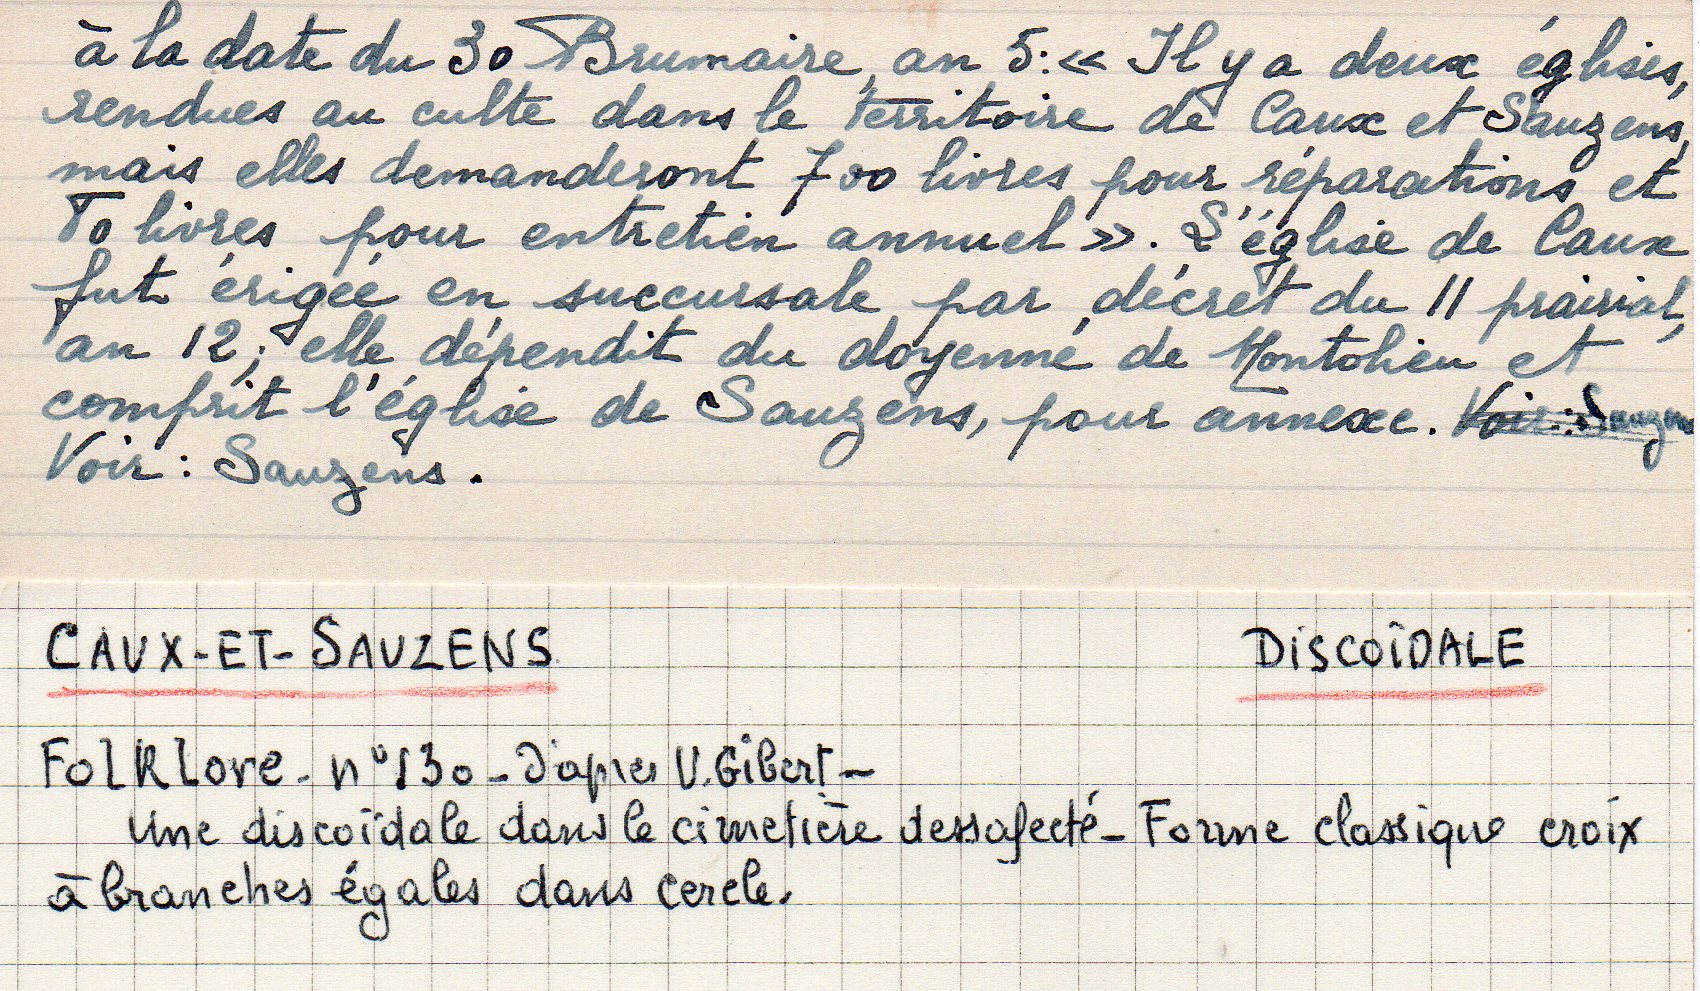 à la date du 30 Brumaire, an 5: « Il y a deux églises,
rendues au culte dans le territoire de Caux et Sauzens,
mais elles demanderont 700 livres pour réparations et
To livres pour entretien annuel ». L'église de Caux
fut érigée en succursale par décret du 11 prairial,
an 12; elle dépendit du doyenné de Montolieu et
comprit l'église de Sauzens, pour annexe. Voir : Sauzens
Voir : Sauzens.
CAUX-ET-SAUZENS
DISCOÏDALE
Folklore - n° 130 - D'après V. Gibert -
Une discoïdale dans le cimetière dessafecté - Forme classique croix
à branches égales dans cercle.